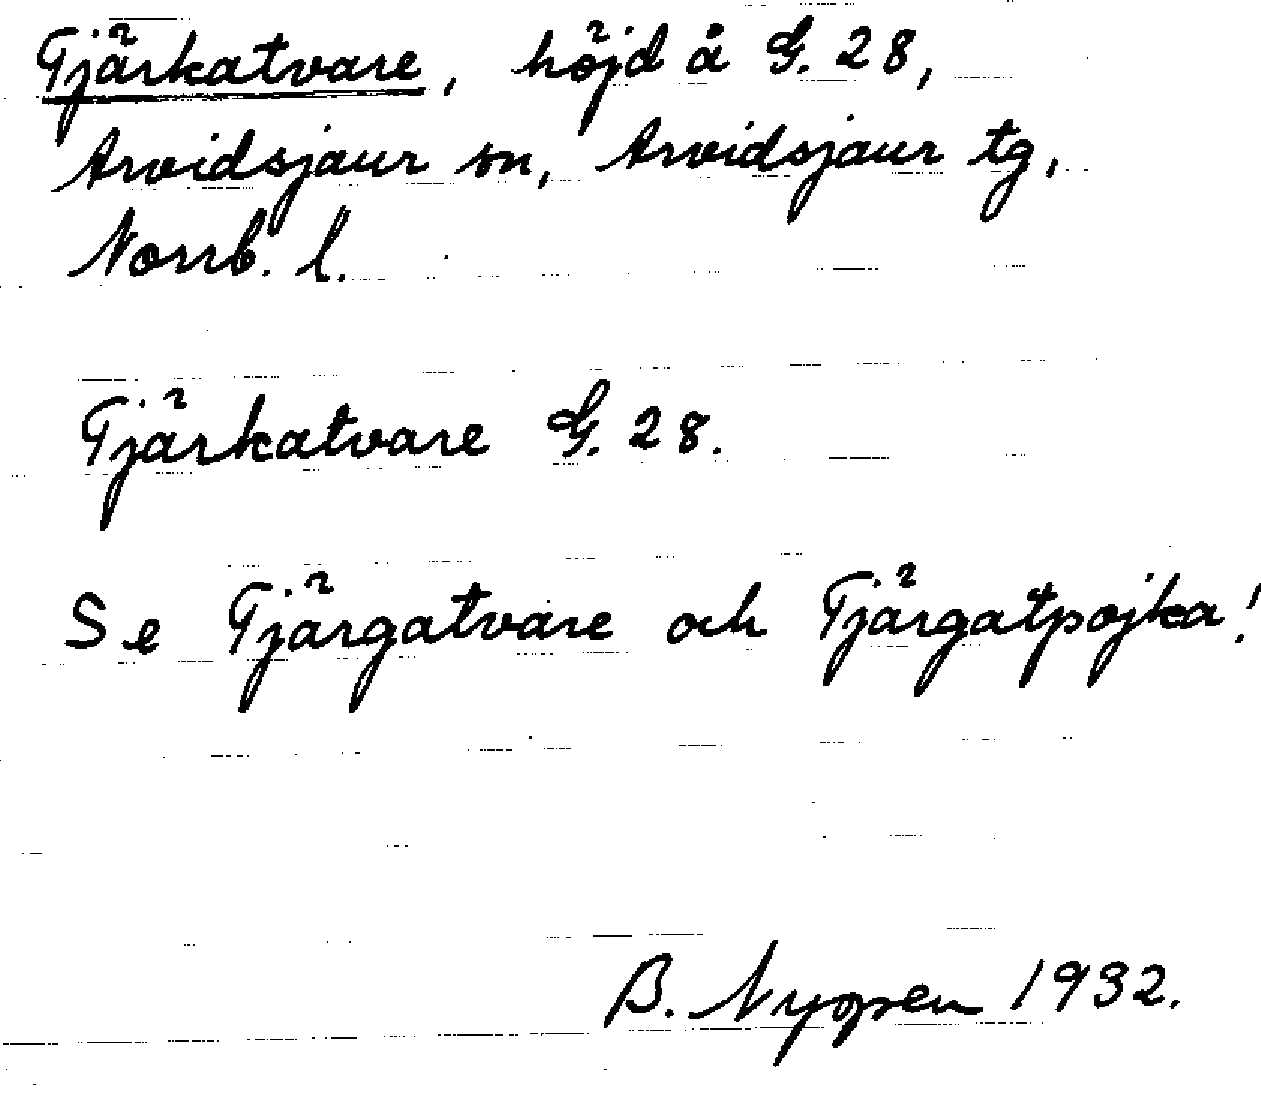 Tjärkatvare, höjd å G. 28,
Arvidsjaur sn, Arvidsjaur tg,
Norrb. l.
Tjärkatvare G. 28.
Se Tjärgatvare och Tjärgatpojka!
B. Nyqvren 1932.